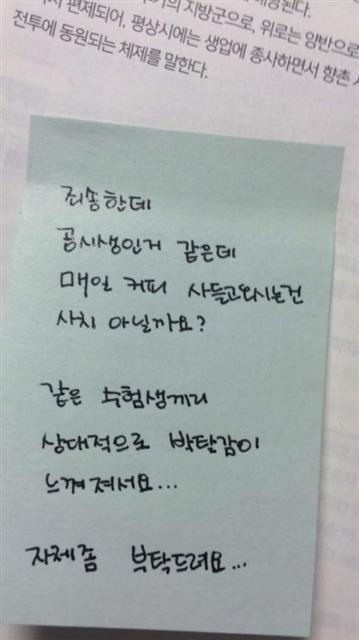 의 지방군으로, 위로는 양반으로
편제되어, 평상시에는 생업에 종사하면서 향촌
전투에 동원되는 체제를 말한다.
죄송한데
공시생인거 같은데
매일 커피 사들고오시는건
사치 아닐까요?
같은 수험생끼리
상대적으로 박탈감이
느껴져서요...
자제좀 부탁드려요...